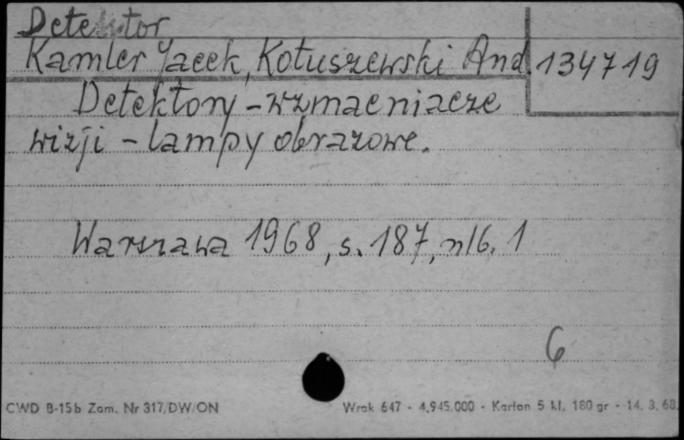 Detektor
Kamler Jacek, Kotuszewski And. 134719
Detektory - wzmacniacze
wizji - lampy obrazowe.
Warszawa 1968, s. 187, nlb. 1
6
CWD B-15b Zam. Nr 317/DW/ON Wrok 647 - 4.945.000 - Karton 5 kl. 180 gr - 14. 3. 68.